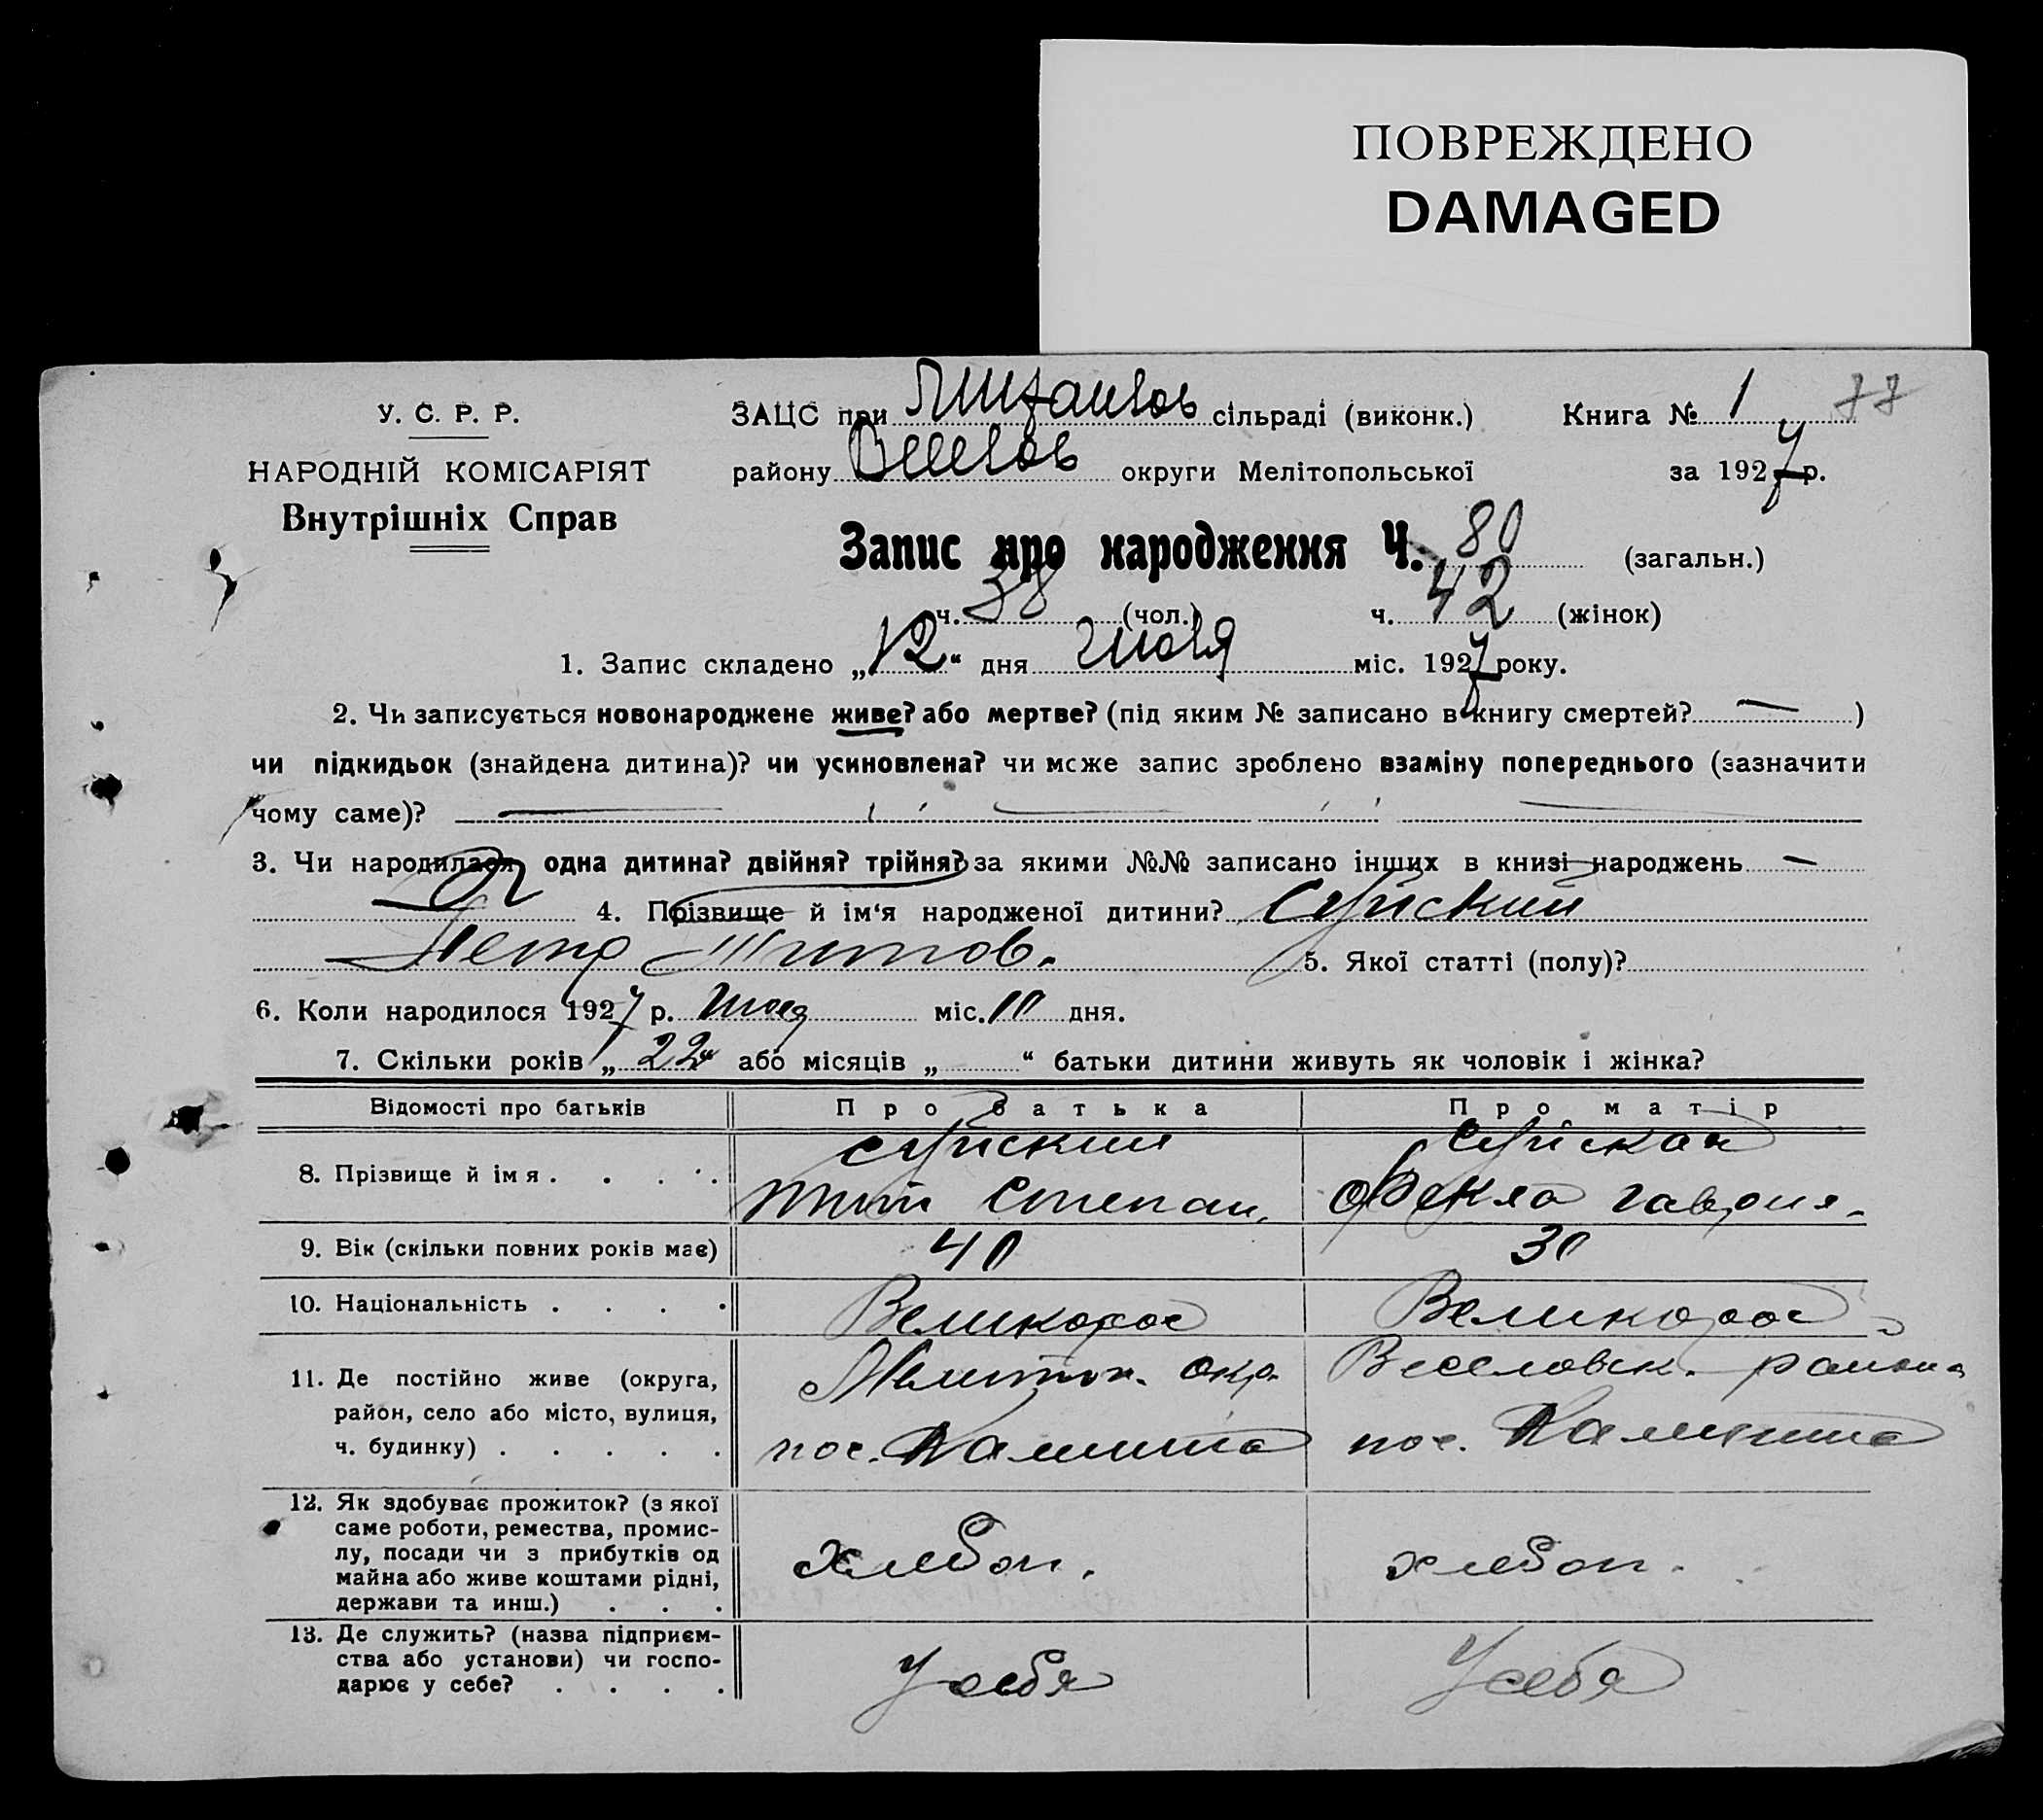 ПОВРЕЖДЕНО
DAMAGED
У. С. Р. Р.
НАРОДНІЙ КОМІСАРІЯТ
Внутрішніх Справ
ЗАЦС при сільраді (виконк.)
Книга № 1
району Веселов округи Мелітопольської
за 1927 р.
Запис про народження Ч. 80 (загальн.)
ч. 38 (чол.) ч. 42 (жінок)
1. Запис складено „12“ дня Июля міс. 1927 року.
2. Чи записується новонароджене живе? або мертве? (під яким № записано в книгу смертей? — )
чи підкидьок (знайдена дитина)? чи усиновлена? чи може запис зроблено взаміну попереднього (зазначити
чому саме)?
3. Чи народилася одна дитина? двійня? трійня? за якими №№ записано інших в книзі народжень —
4. Прізвище й ім‘я народженої дитини?
Петр Титов. 5. Якої статті (полу)?
6. Коли народилося 1927 р. Июля міс. 10 дня.
7. Скільки років „22“ або місяців „ “ батьки дитини живуть як чоловік і жінка?
Відомості про батьків Про батька Про матір
8. Прізвище й імя . . . .
Тит Степан. Фекла Гаврил.
9. Вік (скільки повних років має) 40 30
10. Національність . . . . Великорос Великорос
11. Де постійно живе (округа, Мелитоп. окр. Веселовск. района
район, село або місто, вулиця,
ч. будинку) . . . . . пос. пос.
12. Як здобуває прожиток? (з якої
саме роботи, ремества, промис-
лу, посади чи з прибутків од хлебоп. хлебоп.
майна або живе коштами рідні,
держави та инш.) . . .
13. Де служить? (назва підприєм-
ства або установи) чи госпо- У себя У себя
дарює у себе? . . . .